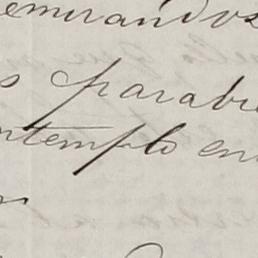 emirandos
s parabe
ntemplo en